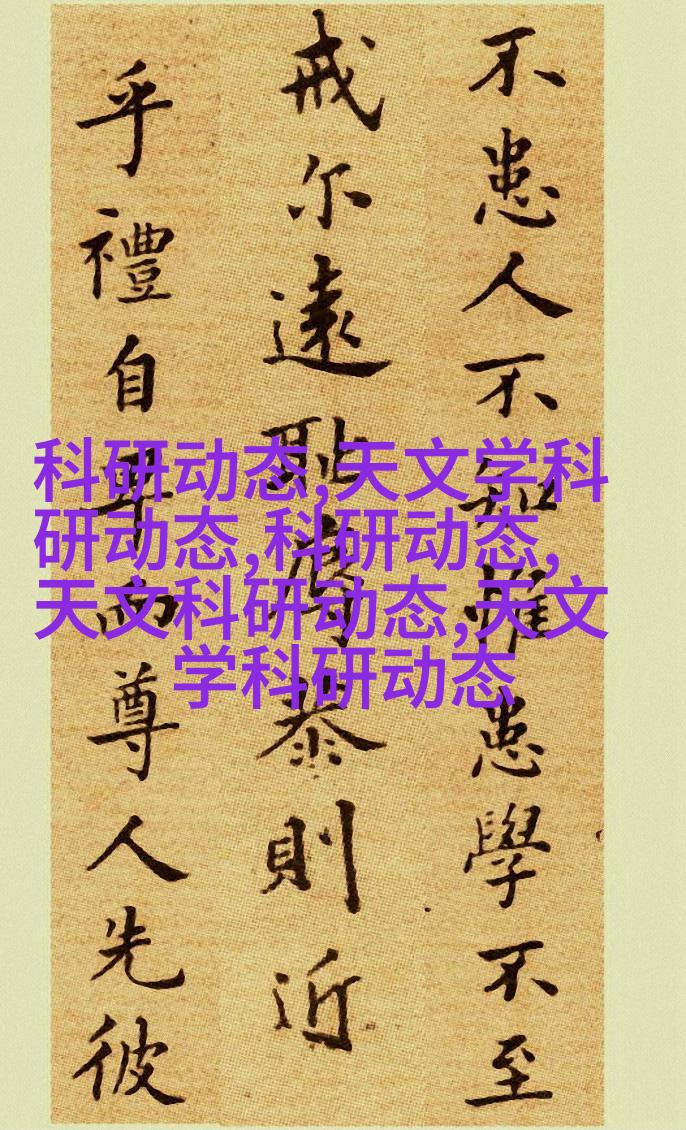 不患人不知惟患學不至
戒尔遠耻辱恭則近
乎禮自卑而尊人先彼
科研动态,天文学科
研动态,科研动态,
天文科研动态,天文
学科研动态